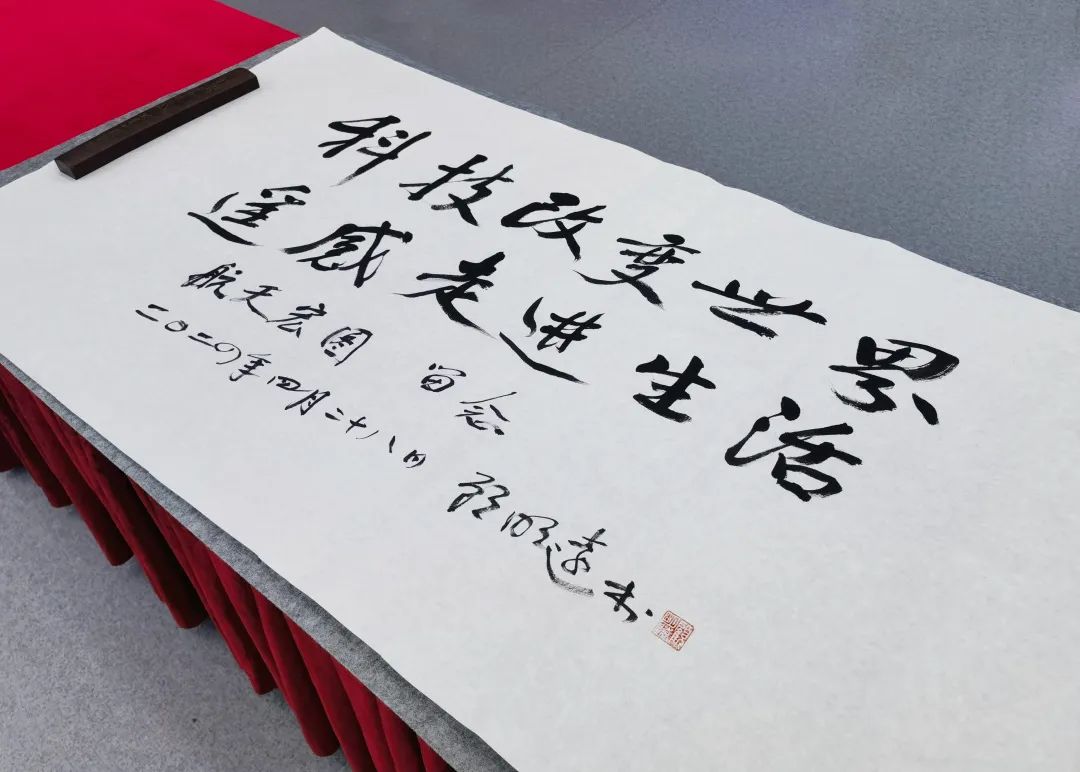 科技改变世界
遥感走进生活
航天宏图 留念
二〇二〇年四月二十八日 顾明远书